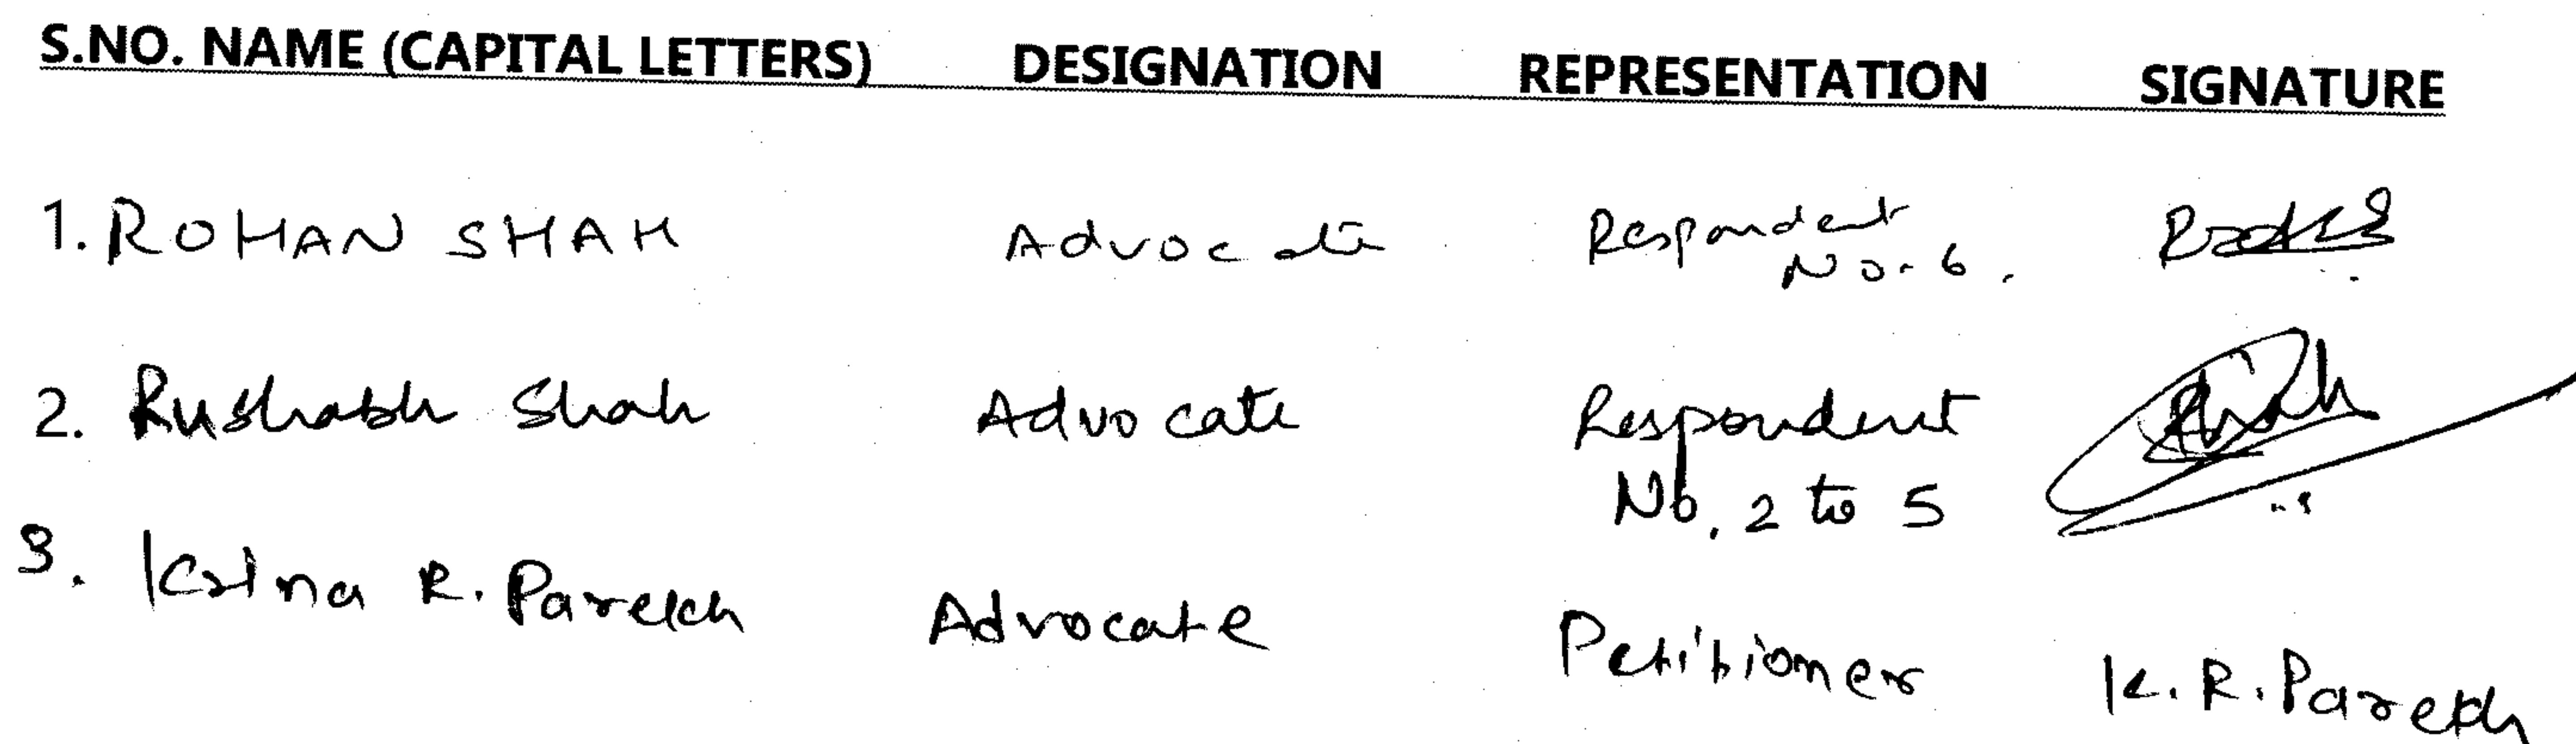 S.NO. NAME (CAPITAL LETTERS) DESIGNATION REPRESENTATION SIGNATURE
1. ROHAN SHAH Advocate Respondent
No. 6.
2. Rushabh Shah Advocate Respondent
No. 2 to 5
3. Krina R. Parekh Advocate Petitioner K. R. Parekh